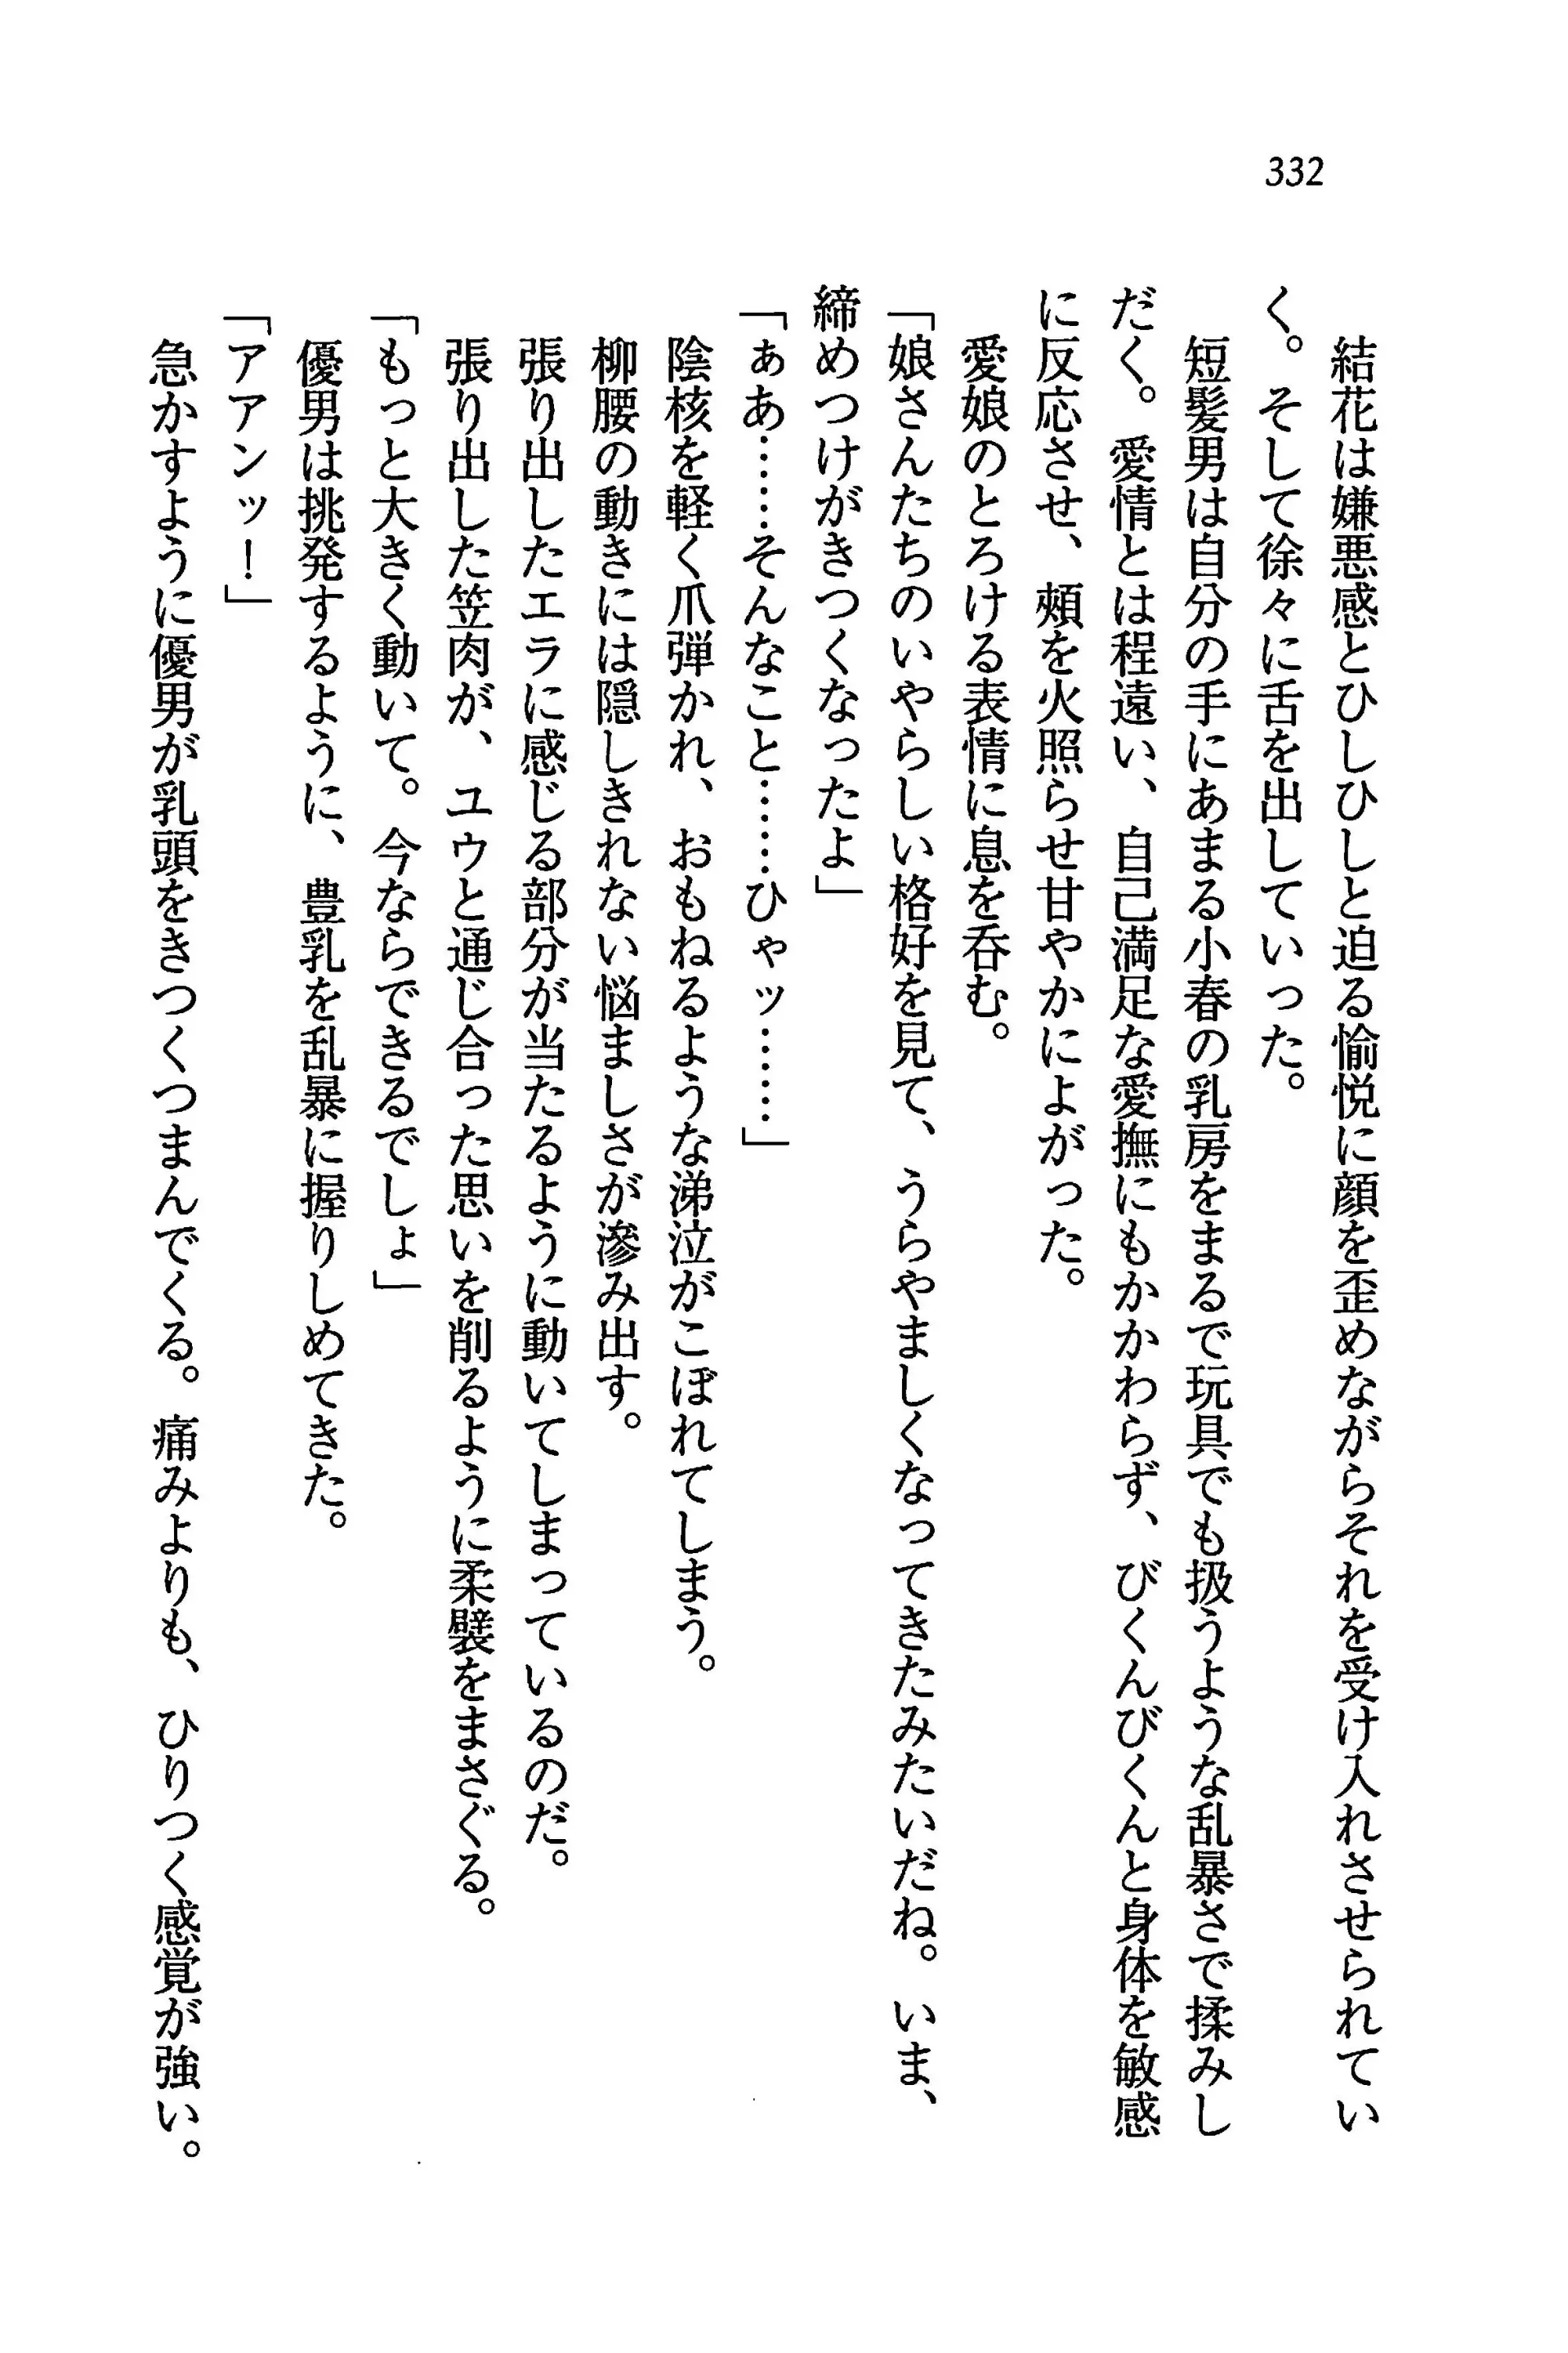 332
結花は嫌悪感とひしひしと迫る愉悦に顔を歪めながらそれを受け入れさせられてい
く。そして徐々に舌を出していった。
短髪男は自分の手にあまる小春の乳房をまるで玩具でも扱うような乱暴さで揉みし
だく。愛情とは程遠い、自己満足な愛撫にもかかわらず、びくんびくんと身体を敏感
に反応させ、頬を火照らせ甘やかによがった。
愛娘のとろける表情に息を呑む。
「娘さんたちのいやらしい格好を見て、うらやましくなってきたみたいだね。いま、
締めつけがきつくなったよ」
「ぁあ……そんなこと……ひゃッ……」
陰核を軽く爪弾かれ、おもねるような涕泣がこぼれてしまう。
柳腰の動きには隠しきれない悩ましさが滲み出す。
張り出したエラに感じる部分が当たるように動いてしまっているのだ。
張り出した笠肉が、ユウと通じ合った思いを削るように柔襞をまさぐる。
「もっと大きく動いて。今ならできるでしょ」
優男は挑発するように、豊乳を乱暴に握りしめてきた。
「アアンッ！」
急かすように優男が乳頭をきつくつまんでくる。痛みよりも、ひりつく感覚が強い。